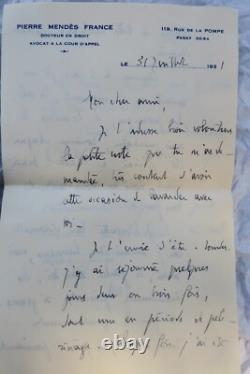 PIERRE MENDÈS FRANCE
DOCTEUR EN DROIT
AVOCAT A LA COUR D'APPEL
119, RUE DE LA POMPE
PASSY
LE 31 Juillet 1931
Mon cher ami,
Je t'adresse bien volontiers
la petite note que tu m'as de-
mandée, très content d'avoir
cette occasion de bavarder avec
toi -
Je t'envie d'être à
J'y ai séjourné quelques
jours deux ou trois fois,
dont une en période de pèle-
rinage. fois, j'ai été